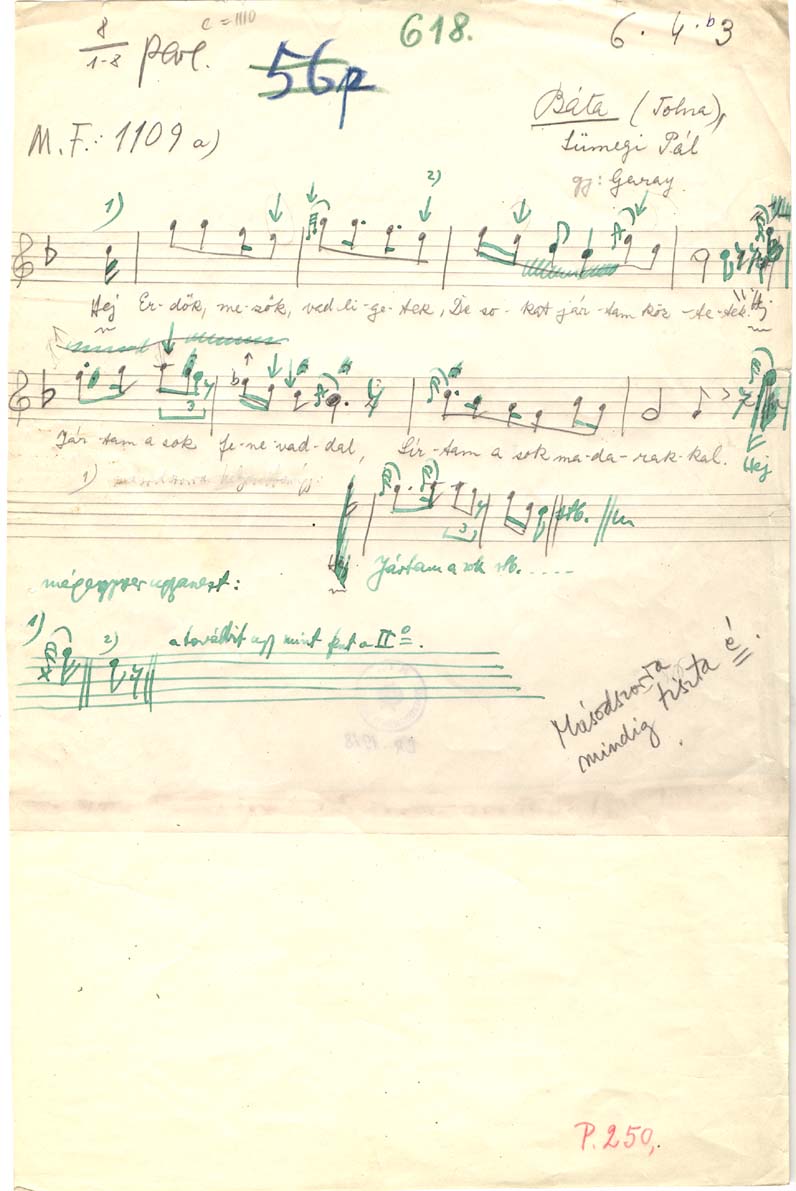 8
1-8
c = 1110
618.
6. 4. b3
56p
M. F.: 1109 a)
Báta (Tolna),
Sümegi Pál
gy: Garay.
1) 2)
Hej Er-dők, me-zők, vad li-ge-tek, De so-kat jár-tam köz-te-tek. Hej
Jár-tam a sok fe-ne-vad-dal, Sir-tam a sok ma-da-rak-kal. Hej
1)
3
stb.
Hej Jártam a sok stb. .....
mégegyszer ugyanezt:
1) 2) a továbbit úgy mint fent a II°.
Másodszorra
mindig tiszta é.
P. 250,.